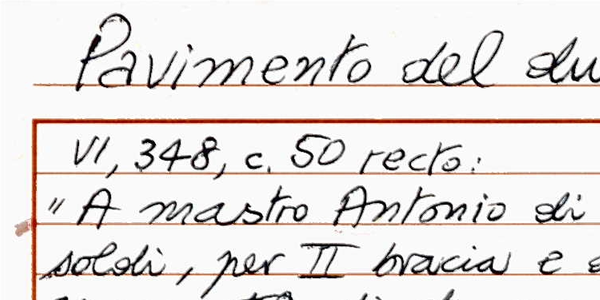 Pavimento del du
VI, 348, c. 50 recto:
"A mastro Antonio di
soldi, per II bracia e